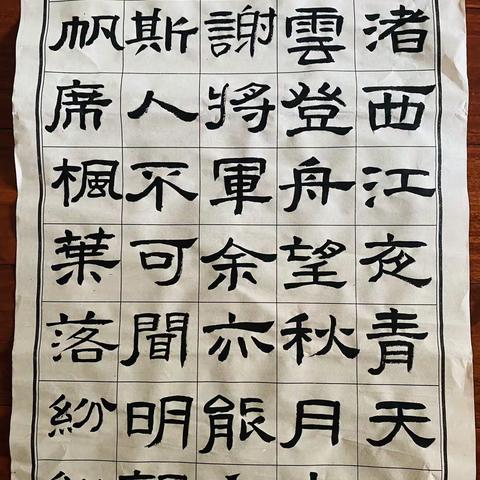 渚西江夜青天
雲登舟望秋月
謝將軍余亦能
斯人不可聞明
帆席楓葉落紛